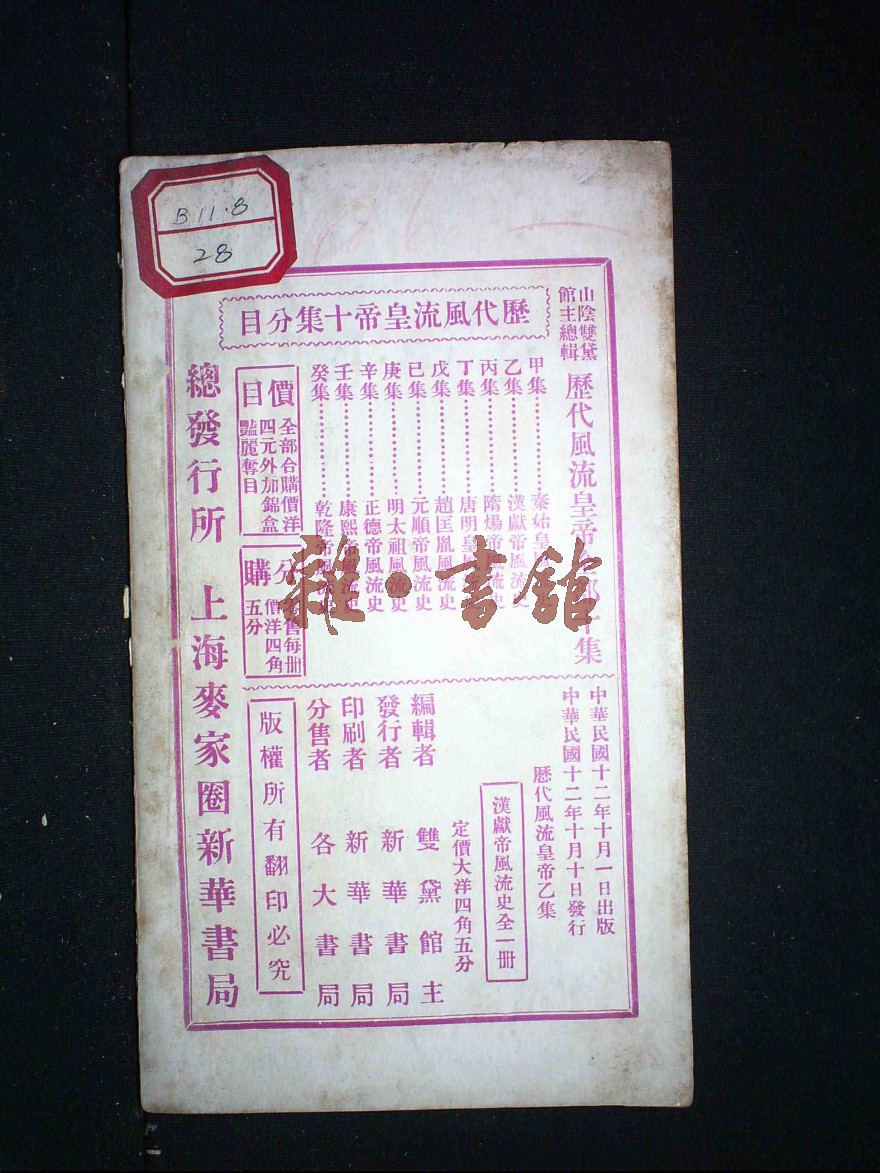 B 11.8
28
山陰雙黛
館主總輯
歷代風流皇帝 十集
歷代風流皇帝十集分目
甲集…………秦始皇
乙集…………漢獻帝風流史
丙集…………隋煬帝 史
丁集…………唐明皇
戊集…………趙匡胤風流史
已集…………元順帝風流史
庚集…………明太祖風流史
辛集…………正德帝風流史
壬集…………康熙帝風流史
癸集…………乾隆帝風流
價目
全部合購價洋
四元外加錦盒
豔麗奪目
分購
零售每册
價洋四角
五分
中華民國十二年十月一日出版
中華民國十二年十月十日發行
歷代風流皇帝乙集
漢獻帝風流史全一册
定價大洋四角五分
編輯者 雙黛館主
發行者 新華書局
印刷者 新華書局
分售者 各大書局
版權所有翻印必究
總發行所 上海麥家圈新華書局
雜·書館